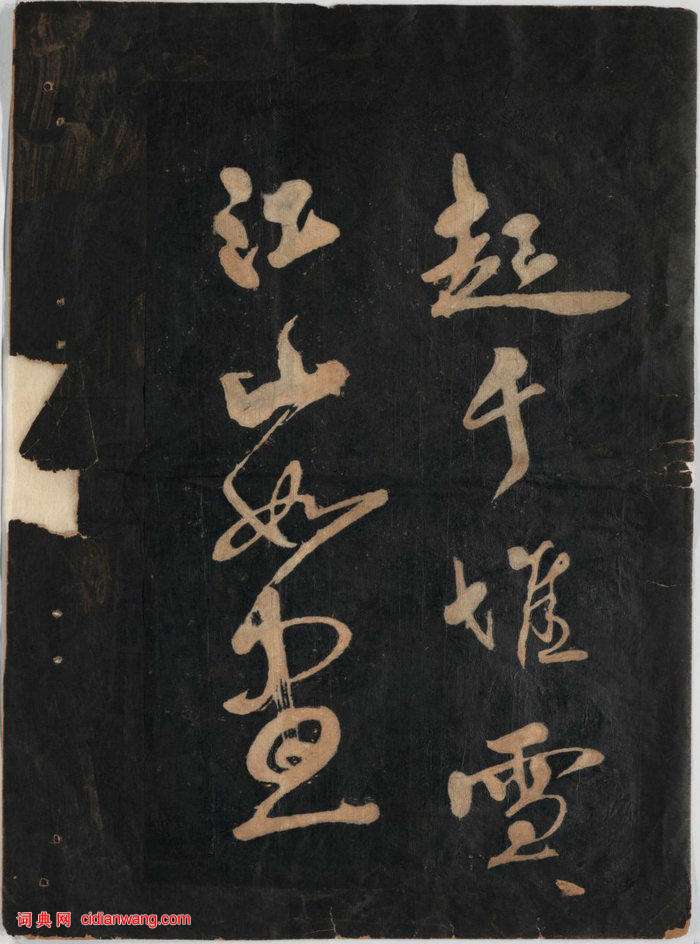 起千堆雪
江山如畫
词典网 cidianwang.com